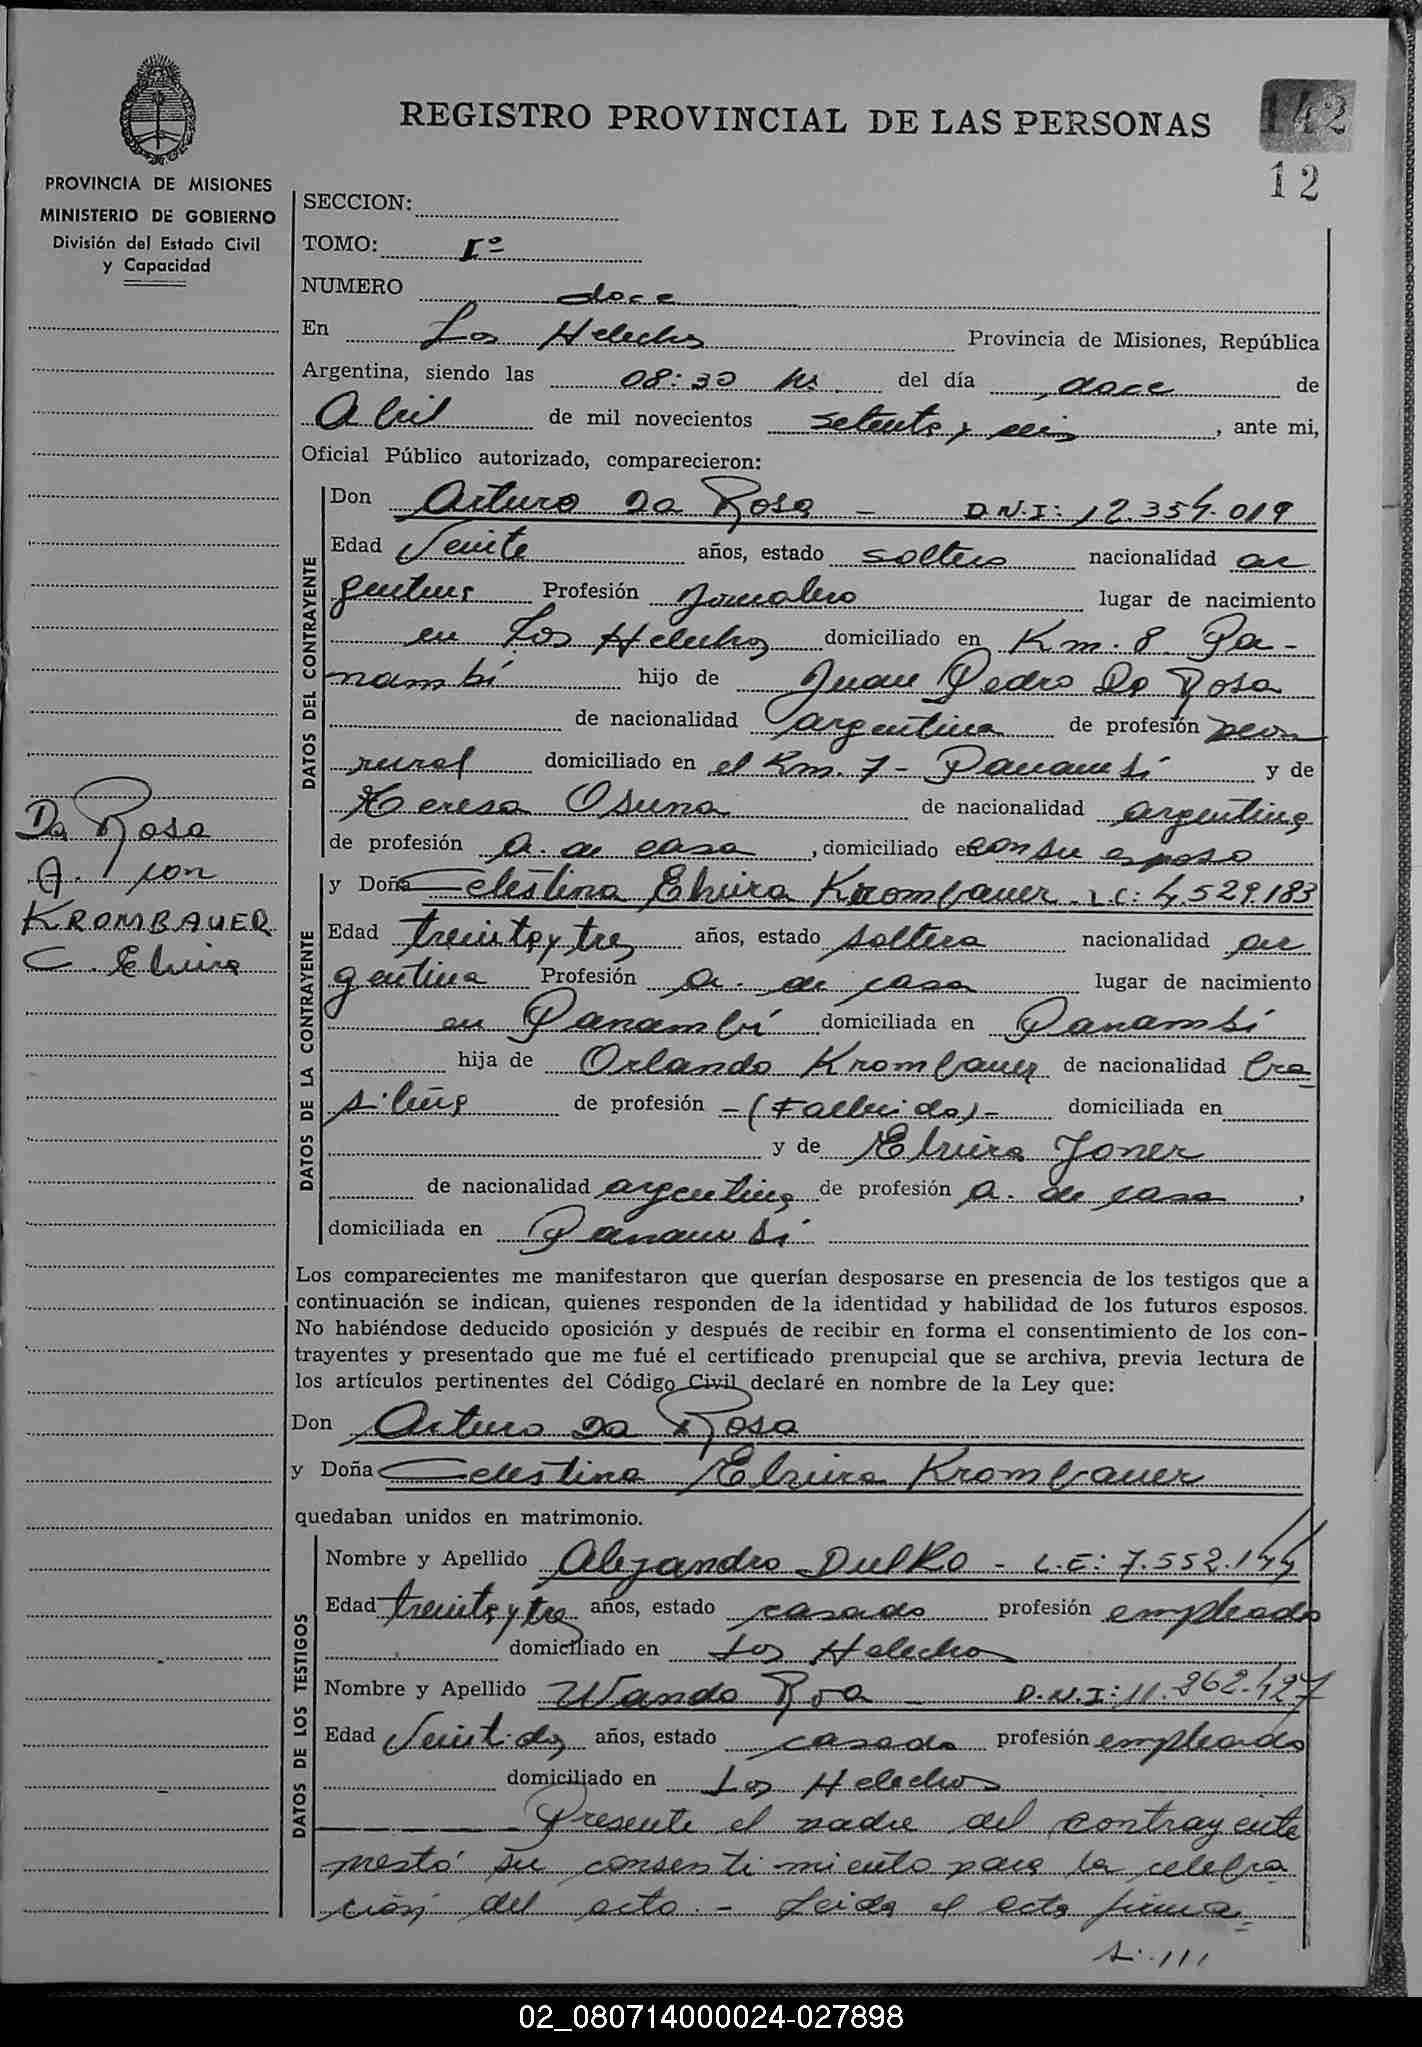 REGISTRO PROVINCIAL DE LAS PERSONAS
142
12
PROVINCIA DE MISIONES
MINISTERIO DE GOBIERNO
División del Estado Civil
y Capacidad
SECCION:
TOMO: Iº
NUMERO doce
En Los Helechos Provincia de Misiones, República
Argentina, siendo las 08:30 hs. del día doce de
Abril de mil novecientos setenta y seis, ante mi,
Oficial Público autorizado, comparecieron:
DATOS DEL CONTRAYENTE
Don Arturo Da Rosa - D.N.I: 12.354.019
Edad Veinte años, estado soltero nacionalidad ar
gentina Profesión Jornalero lugar de nacimiento
en Los Helechos domiciliado en Km. 8 Pa-
nambí hijo de Juan Pedro Da Rosa
de nacionalidad argentina de profesión peon
rural domiciliado en el Km. 7 - Panambí y de
Teresa Osuna de nacionalidad argentina
de profesión a. de casa, domiciliado en con su esposo
Da Rosa
A. con
KROMBAUER
C. Elvira
DATOS DE LA CONTRAYENTE
y Doña Celestina Elvira Krombauer. L.C: 4.529.183
Edad treinta y tres años, estado soltera nacionalidad ar
gentina Profesión a. de casa lugar de nacimiento
en Panambí domiciliada en Panambí
hija de Orlando Krombauer de nacionalidad bra
sileña de profesión -(Fallecido)- domiciliada en
y de Elvira Joner
de nacionalidad argentina de profesión a. de casa,
domiciliada en Panambí
Los comparecientes me manifestaron que querían desposarse en presencia de los testigos que a
continuación se indican, quienes responden de la identidad y habilidad de los futuros esposos.
No habiéndose deducido oposición y después de recibir en forma el consentimiento de los con-
trayentes y presentado que me fué el certificado prenupcial que se archiva, previa lectura de
los artículos pertinentes del Código Civil declaré en nombre de la Ley que:
Don Arturo Da Rosa
y Doña Celestina Elvira Krombauer
quedaban unidos en matrimonio.
DATOS DE LOS TESTIGOS
Nombre y Apellido Alejandro Dulko - L.E: 7.552.144
Edad treinta y tres años, estado casado profesión empleado
domiciliado en Los Helechos
Nombre y Apellido Wando Roa - D.N.I: 11.262.427
Edad Veintidos años, estado casado profesión empleado
domiciliado en Los Helechos
Presente el padre del contrayente
prestó su consentimiento para la celebra
ción del acto. - Leida el acta firma=
02_080714000024-027898